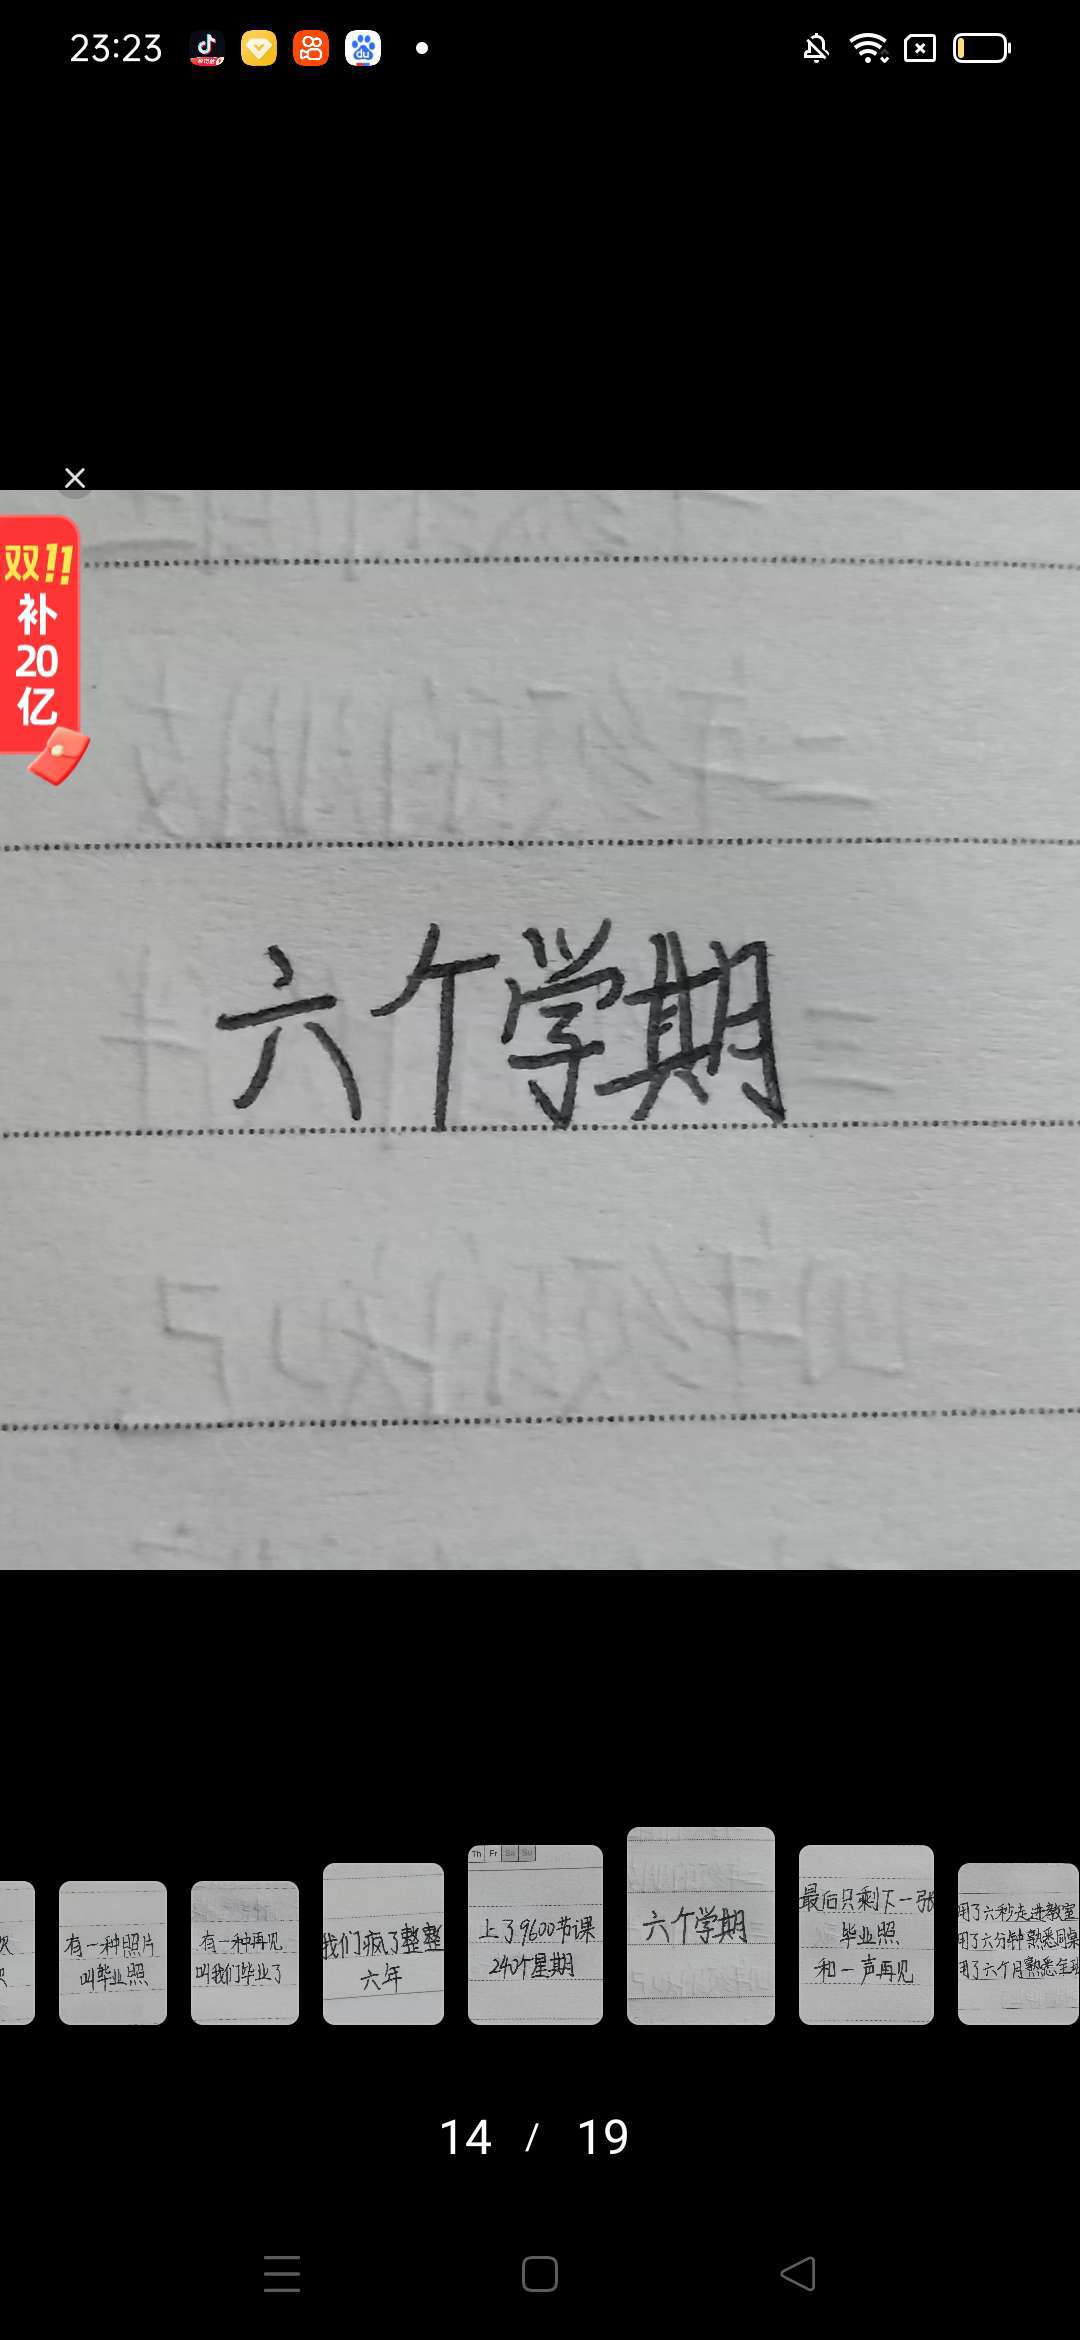 23:23
双11
补
20
亿
六个学期
有一种照片
叫毕业照
有一种再见
叫我们毕业了
我们疯了整整
六年
Th Fr Sa Su
上了9600节课
240个星期
六个学期
最后只剩下一张
毕业照
和一声再见
用了六秒走进教室
用了六分钟熟悉同桌
用了六个月熟悉全班
14 / 19